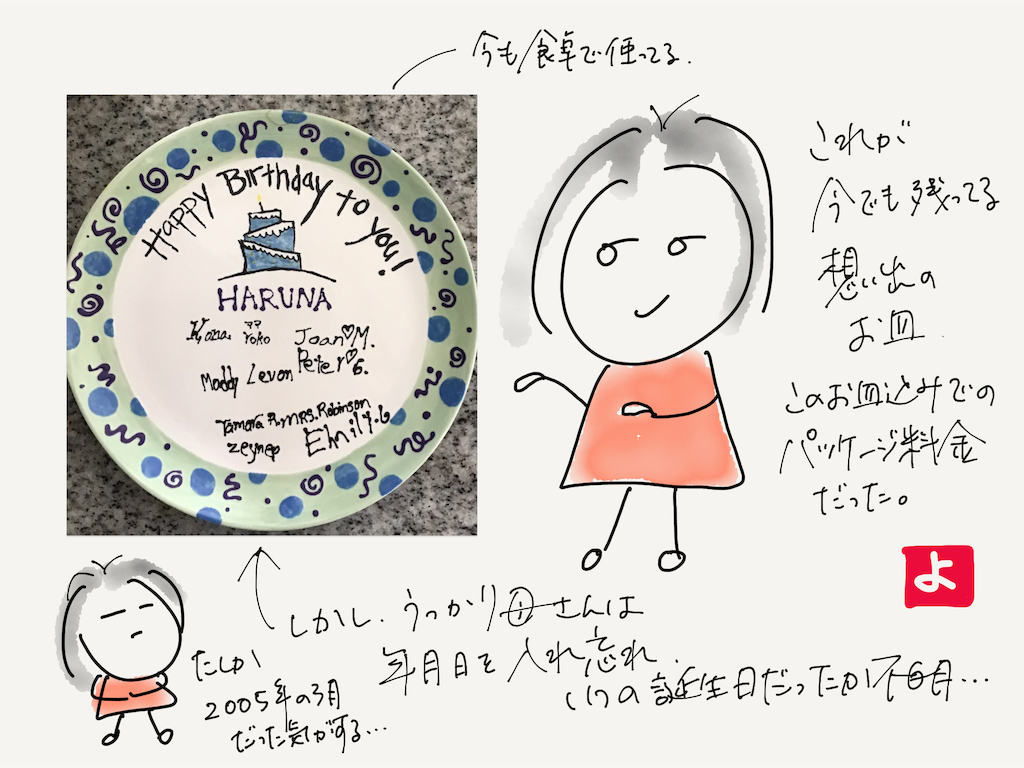 今も食卓で使ってる.
HAPPY BirthdAy to you!
HARUNA
Kana.
ママ
Yoko
Joan♡M.
Maddy
Levon
Peter♡G.
Tamara R.
MRS.Robinson
zeynep
Emily.G
これが
今でも残ってる
想い出の
お皿
このお皿込みでの
パッケージ料金
だった。
よ
しかし、うっかり母さんは
年月日を入れ忘れ.
いつの誕生日だったか不明…
たしか
2005年の3月
だった気がする…